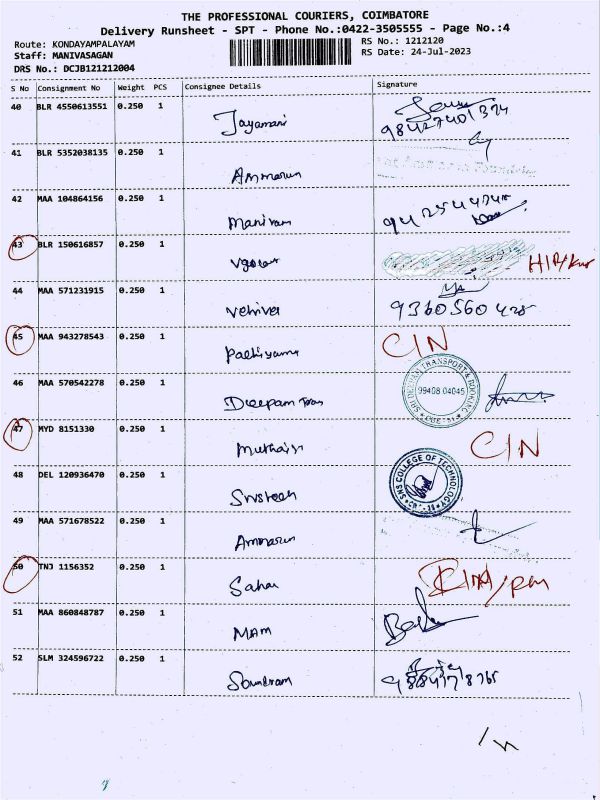 THE PROFESSIONAL COURIERS, COIMBATORE
Delivery Runsheet - SPT - Phone No.:0422-3505555 - Page No.:4
Route: KONDAYAMPALAYAM
RS No.: 1212120
Staff: MANIVASAGAN
RS Date: 24-Jul-2023
DRS No.: DCJB121212004
S No Consignment No Weight PCS Consignee Details Signature
40 BLR 4550613551 0.250 1 Jayamani
41 BLR 5352038135 0.250 1 Ammarun
42 MAA 104864156 0.250 1 Maniram
43 BLR 150616857 0.250 1
44 MAA 571231915 0.250 1 Vetrivel
45 MAA 943278543 0.250 1 CIN
46 MAA 570542278 0.250 1 Deepam Trans SRI DEEPAM TRANSPORT & BOOKING 99408 04045
47 MYD 8151330 0.250 1 CIN
48 DEL 120936470 0.250 1 SNS COLLEGE OF TECHNOLOGY
49 MAA 571678522 0.250 1 Ammarun
50 TNJ 1156352 0.250 1 Sahar
51 MAA 860848787 0.250 1 MAM
52 SLM 324596722 0.250 1 Soundram